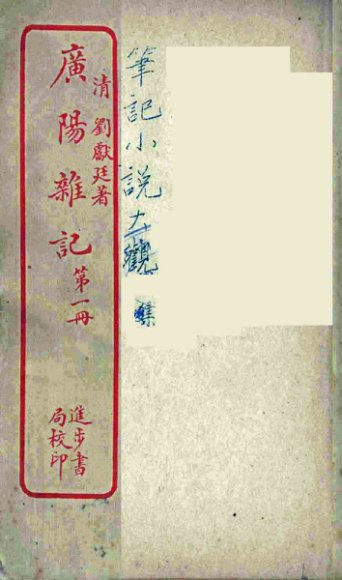 筆記小說大觀 集
清 劉獻廷著
廣陽雜記 第一冊
進步書
局校印